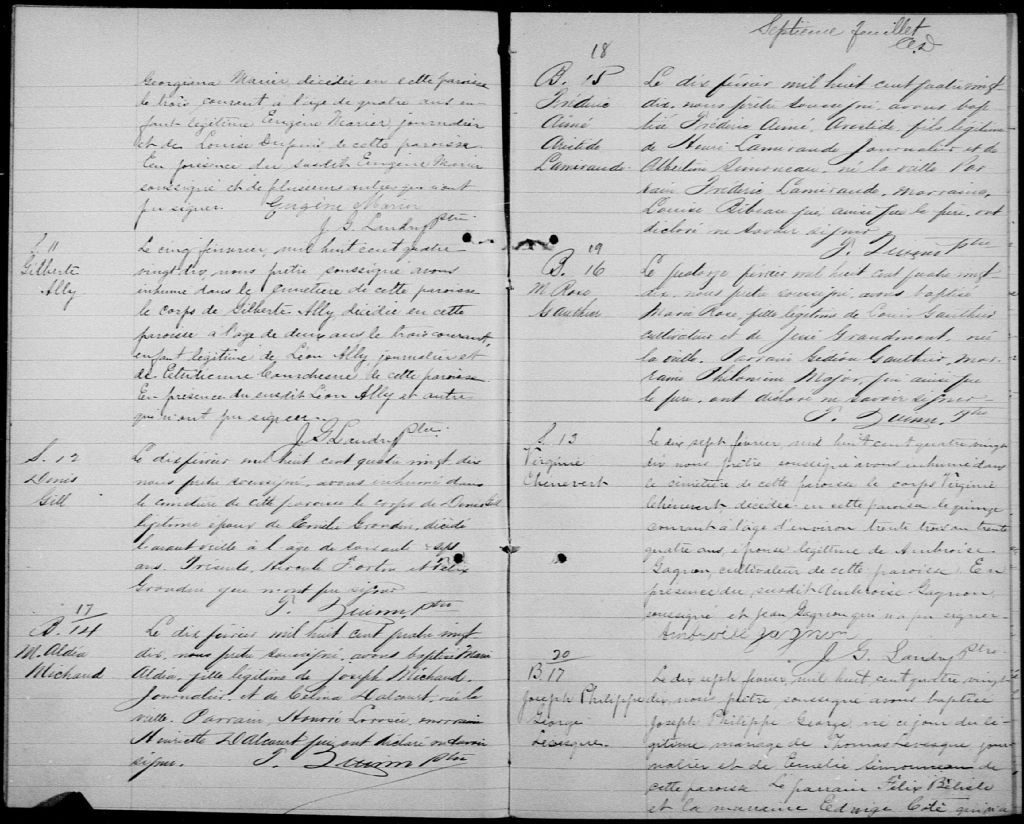 Georgiana Marier décédée en cette paroisse
le trois courant à l'age de quatre ans en-
fant légitime Eugène Marier journalier
et de Louise Dupuis de cette paroisse
En présence du susdit Eugène Marier
soussigné et de plusieurs autres qui n'ont
pu signer. Eugène Marier
J G. Landry ptre
S. 11
Gilberte
Ally
Le cinq février, mil huit cent quatre
vingt dix, nous prêtre soussigné avons
inhumé dans le cimetière de cette paroisse
le corps de Gilberte Ally décédée en cette
paroisse à l'age de deux ans le trois courant,
enfant légitime de Léon Ally journalier et
de Courchesne de cette paroisse
En présence du susdit Léon Ally et autre
qui n'ont pu signer
J G Landry ptre
S. 12
Denis
Gill
Le dix février mil huit cent quatre vingt dix
nous prêtre soussigné, avons inhumé dans
le cimetière de cette paroisse le corps de Denis Gill
légitime epoux de Emélie Grondin, décédé
l'avant veille à l'age de soixante & sept
ans. Présents, Fortin et Félix
Grondin qui n'ont pu signer
P. Quinn ptre
17
B. 14
M. Aldéa
Michaud
Le dix février mil huit cent quatre vingt
dix. nous prêtre soussigné, avons baptisé Marie
Aldéa, fille légitime de Joseph Michaud,
Journalier et de Célina Dalcourt, née la
veille. Parrain, Honoré marraine
Henriette Dalcourt qui ont déclaré ne savoir
signer. P. Quinn ptre
Septième feuillet
18
B. 15
Frédéric
Aimé
Aristide
Lamirande
Le dix février mil huit cent quatre vingt
dix, nous prêtre soussigné, avons bap
tisé Frédéric Aimé, Aristide, fils légitime
de Henri Lamirande Journalier et de
Albertine Simoneau, né la veille Par
rain Frédéric Lamirande, marraine,
Louise Bibeau qui, ainsi que le père, ont
déclaré ne savoir signer
P. Quinn ptre
19
B. 16
M. Rose
Gauthier
Le quatorze février mil huit cent quatre vingt
dix. nous prêtre soussigné, avons baptisé
Marie Rose, fille légitime de Louis Gauthier
cultivateur et de Grandmont, née
la veille. Parrain Gédéon Gauthier, mar-
raine Philomène Major, qui ainsi que
le père, ont déclaré ne savoir signer
P. Quinn. Ptre
S. 13
Virginie
Chenevert
Le dix sept février, mil huit cent quatre vingt
dix nous prêtre soussigné avons inhumé dans
le cimetière de cette paroisse le corps Virginie
Chenevert décédée en cette paroisse le quinze
courant à l'age d'environ trente trois ou trente
quatre ans, épouse légitime de Ambroise
Gagnon, cultivateur de cette paroisse. En
présence du susdit Ambroise Gagnon,
soussigné et Jean Gagnon qui n'a pu signer
Ambroise gagnon
J. G. Landry ptre
20
B. 17
Joseph Philippe
George
Levesque.
Le dix sept février, mil huit cent quatre vingt
dix, nous prêtre soussigné avons baptisé
Joseph Philippe George, né ce jour du lé-
gitime mariage de Thomas Levesque jour-
nalier et de Emélie Simonneau de
cette paroisse Le parrain Félix Bélisle
et la marraine Edwige Coté qui n'a